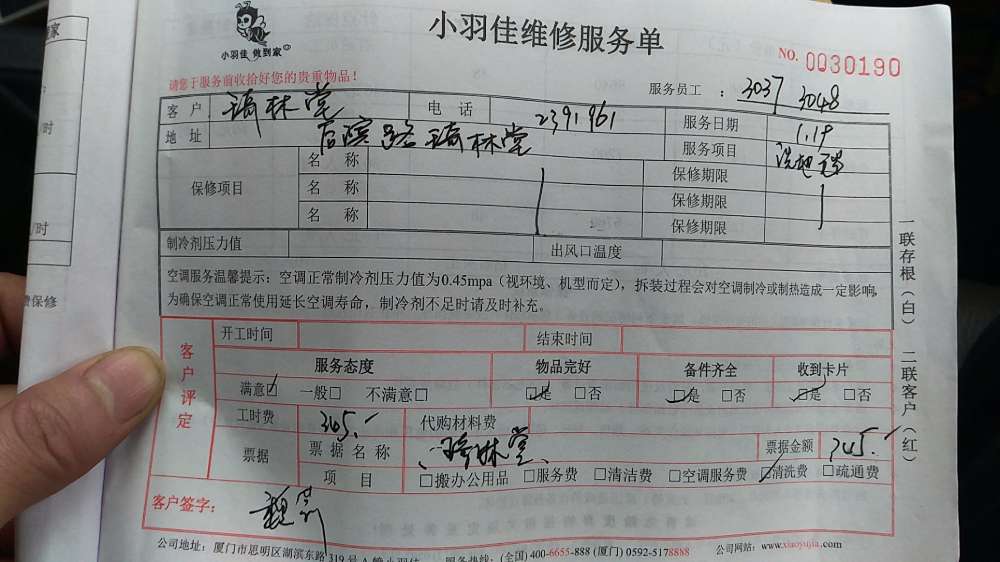 小羽佳 做到家
小羽佳维修服务单
NO. 0030190
请您于服务前收拾好您的贵重物品!
服务员工 : 3037 3048
客 户 琦林堂 电 话 2391961 服务日期 1.19
地 址 后滨路琦林堂 服务项目 洗地毯
保修项目 名 称 保修期限
名 称 保修期限
名 称 保修期限
制冷剂压力值 出风口温度
空调服务温馨提示:空调正常制冷剂压力值为0.45mpa(视环境、机型而定),拆装过程会对空调制冷或制热造成一定影响,
为确保空调正常使用延长空调寿命,制冷剂不足时请及时补充。
客户评定
开工时间 结束时间
服务态度 物品完好 备件齐全 收到卡片
满意☑ 一般□ 不满意□ ☑是 □否 ☑是 □否 ☑是 □否
工时费 345.- 代购材料费
票据 票据名称 琦林堂 票据金额 345.-
项 目 □搬办公用品 □服务费 □清洁费 □空调服务费 ☑清洗费 □疏通费
客户签字:
公司地址:厦门市思明区湖滨东路319号A 服务热线:(全国) 400-6655-888 (厦门) 0592-5178888 公司网站:www.xiaoyujia.com
一联存根(白) 二联客户(红)
家
时
/时
保修